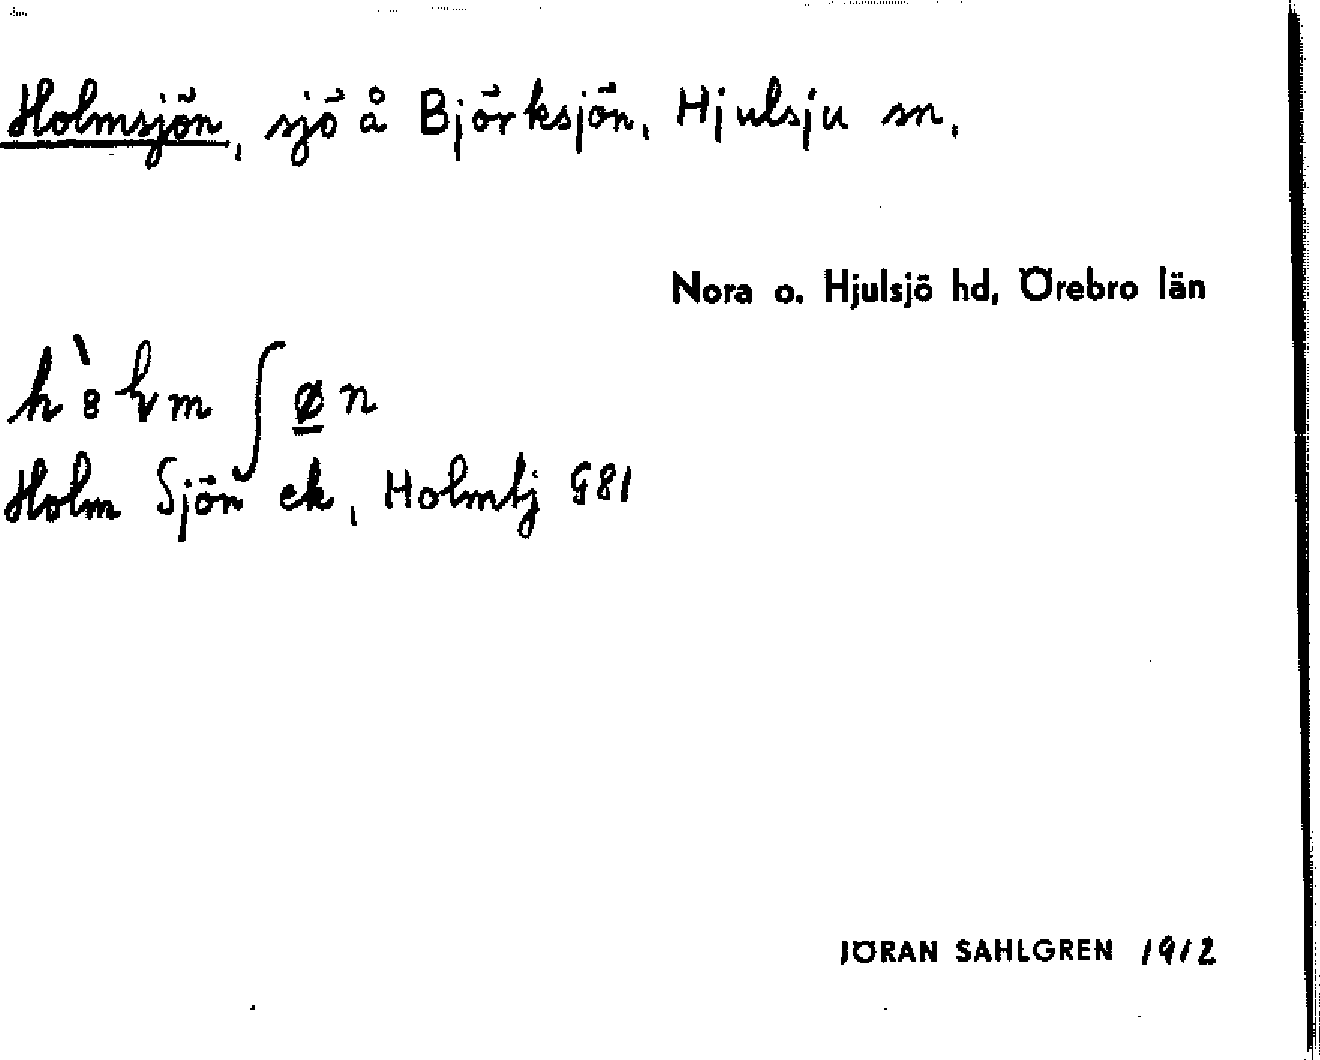 Holmsjön, sjö å Björksjön, Hjulsju sn.
Nora o. Hjulsjö hd, Örebro län
Holm Sjön ek, Holmtj G81
JÖRAN SAHLGREN 1912